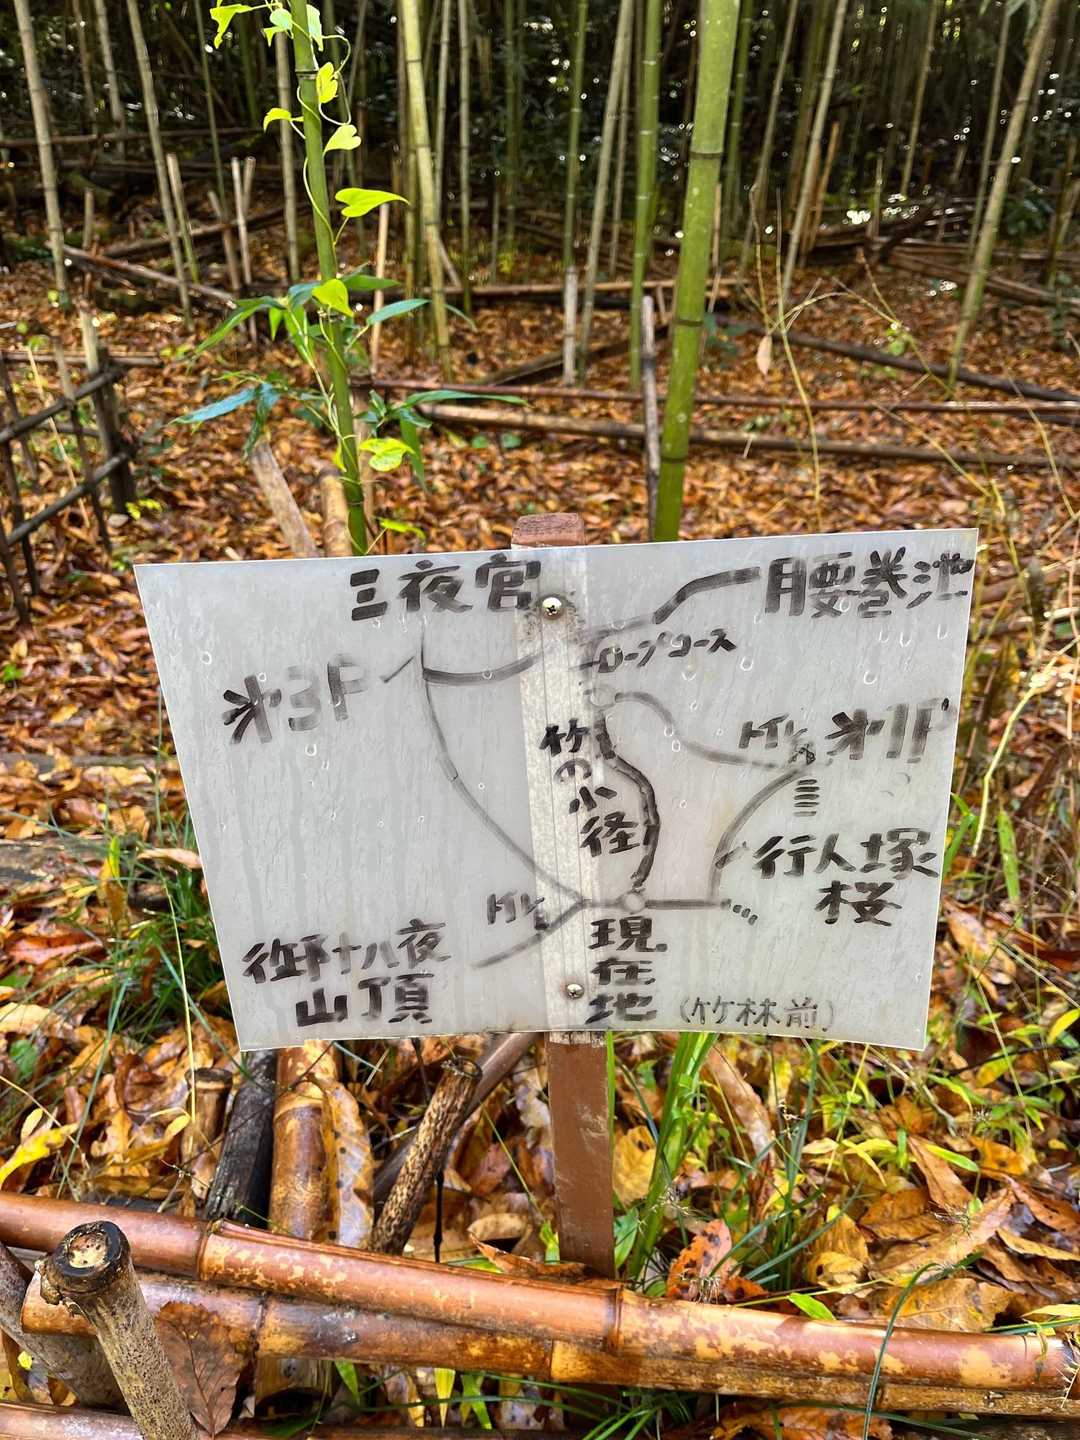 三夜宮
腰巻池
ロープコース
第3P
トイレ
第1P
竹の小径
行人塚
桜
トイレ
御十八夜
山頂
現在地
(竹林前)